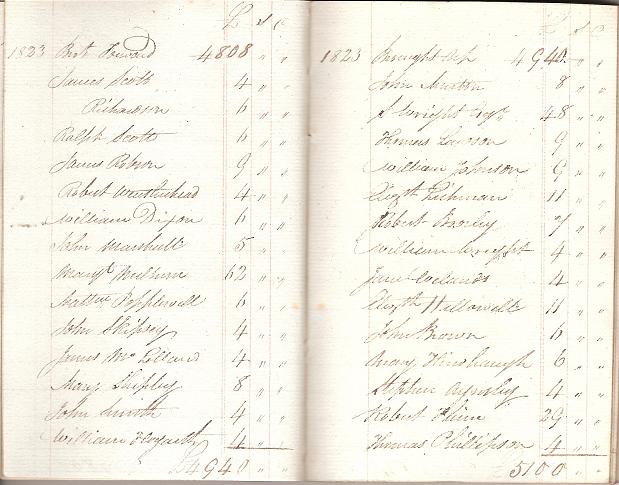 £ s d
1823 Brot Forward 4808 " "
James Scott 4 " "
Richardson 6 " "
Ralph Scott 6 " "
James Robson 9 " "
Robert Weatherhead 4 " "
William Dixon 6 " "
John Marshall 5 " "
Margt Milburn 62 " "
Matthew Popplewell 6 " "
John Skipsey 4 " "
James McLelland 4 " "
Mary Shipley 8 " "
John Smith 4 " "
William Hogarth 4 " "
£4940 " "
£ s d
1823 Brought Up 4940 " "
John 8 " "
S Wright Esqr 48 " "
Thomas Lawson 9 " "
William Johnson 9 " "
Elizth Richman 11 " "
Robert 7 " "
William Wright 4 " "
Jane 4 " "
Elizth Hallowell 11 " "
John Brown 6 " "
Mary Hinshaugh 6 " "
Stephen Aynsley 4 " "
Robert 29 " "
Thomas Phillipson 4 " "
5100 " "